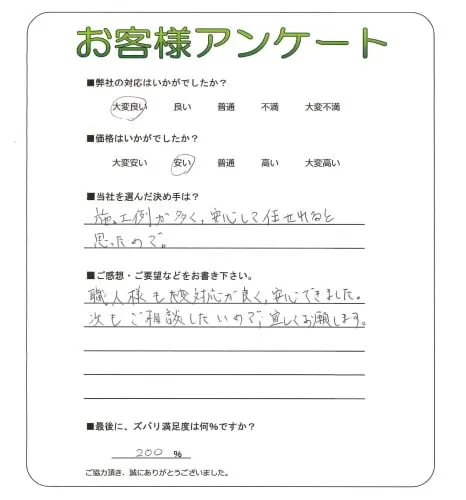 お客様アンケート
■弊社の対応はいかがでしたか?
大変良い 良い 普通 不満 大変不満
■価格はいかがでしたか?
大変安い 安い 普通 高い 大変高い
■当社を選んだ決め手は?
施工例が多く、安心して任せれると
思ったので。
■ご感想・ご要望などをお書き下さい。
職人様も大変対応が良く、安心できました。
次もご相談したいので、宜しくお願します。
■最後に、ズバリ満足度は何%ですか?
200 %
ご協力頂き、誠にありがとうございました。